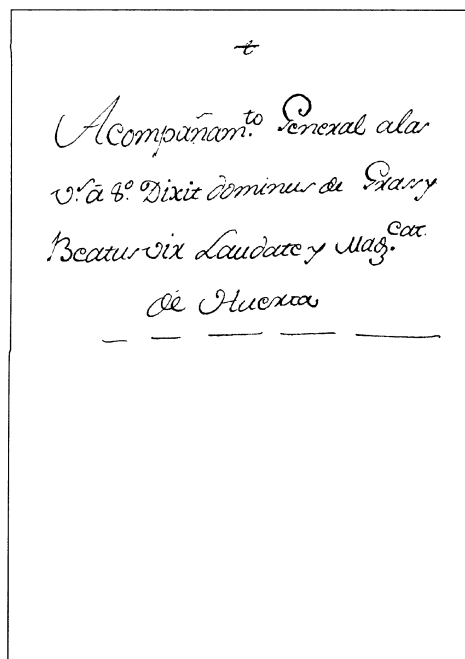 Acompañam.to General alas
v.s à 8.o Dixit dominus de Grass y
Beatus vir Laudate y Mag.cat.
de Huerta